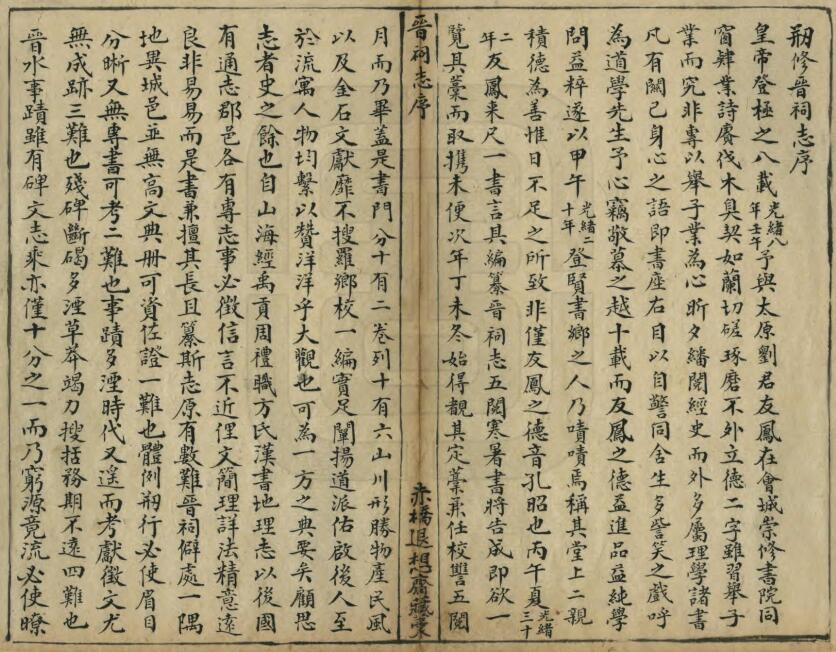 剏修晉祠志序
皇帝登極之八載光緒八年壬午予與太原劉君友鳳在會城崇修書院同
窗肄業詩賡伐木臭契如蘭切磋琢磨不外立德二字雖習舉子
業而究非專以舉子業為心昕夕繙閱經史而外多屬理學諸書
凡有關己身心之語即書座右目以自警同舍生多訾笑之戲呼
為道學先生予心竊敬慕之越十載而友鳳之德益進品益純學
問益粹遂以甲午光緒二十年登賢書鄉之人乃嘖嘖焉稱其堂上二親
積德為善惟日不足之所致非僅友鳳之德音孔昭也丙午夏光緒三十
二年友鳳来尺一書言其編纂晉祠志五閱寒暑書將告成即欲一
覽其藁而取攜未便次年丁未冬始得覩其定藁兼任校讐五閱
晉祠志序
赤橋退想齋藏藁
月而乃畢蓋是書門分十有二卷列十有六山川形勝物產民風
以及金石文獻靡不搜羅鄉校一編實足闡揚道派佑啟後人至
於流寓人物均繫以贊洋洋乎大觀也可為一方之典要矣顧思
志者史之餘也自山海經禹貢周禮職方氏漢書地理志以後國
有通志郡邑各有專志事必徵信言不近俚文簡理詳法精意遠
良非易易而是書兼擅其長且纂斯志原有數難晉祠僻處一隅
地異城邑並無高文典冊可資佐證一難也體例剏行必使眉目
分晰又無專書可考二難也事蹟多湮時代又遥而考獻徵文尤
無成跡三難也殘碑斷碣多湮草莽竭力搜括務期不遠四難也
晉水事蹟雖有碑文志乘亦僅十分之一而乃窮源竟流必使瞭